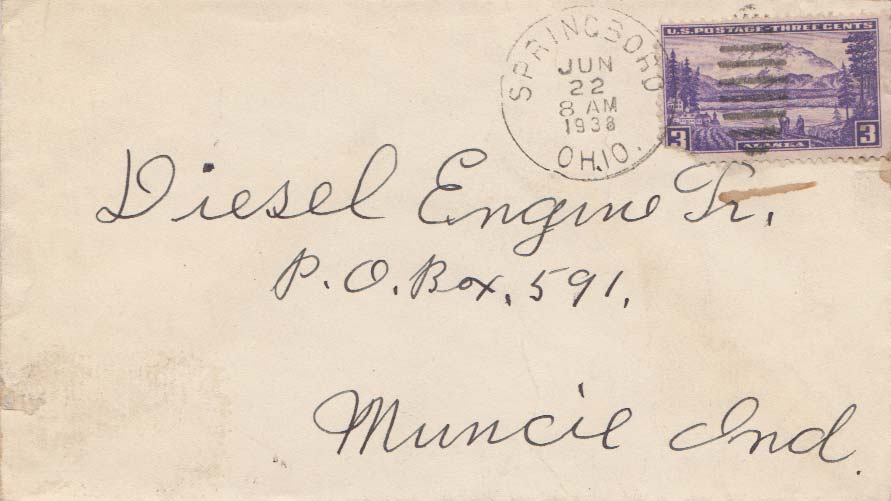 SPRINGBORO
JUN
22
8 AM
1938
OHIO.
U.S. POSTAGE-THREE CENTS
3 3
ALASKA
Diesel Engine Tr.
P.O. Box. 591.
Muncie Ind.